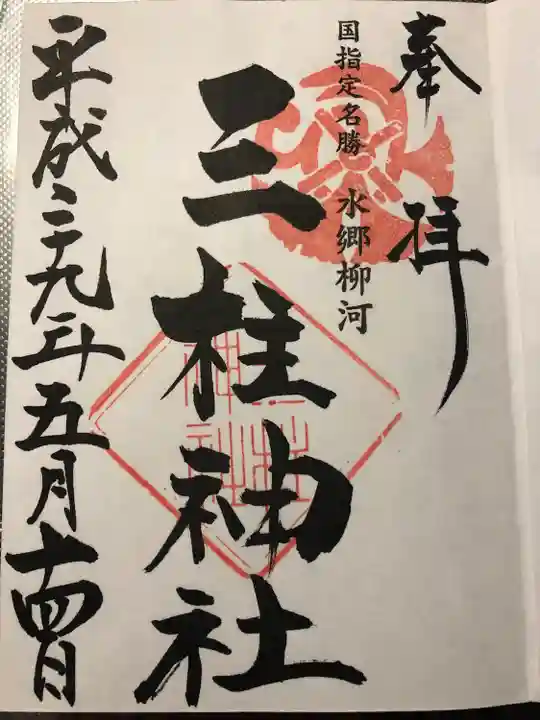 奉拝
国指定名勝 水郷柳河
三柱神社
平成二十九年五月十四日